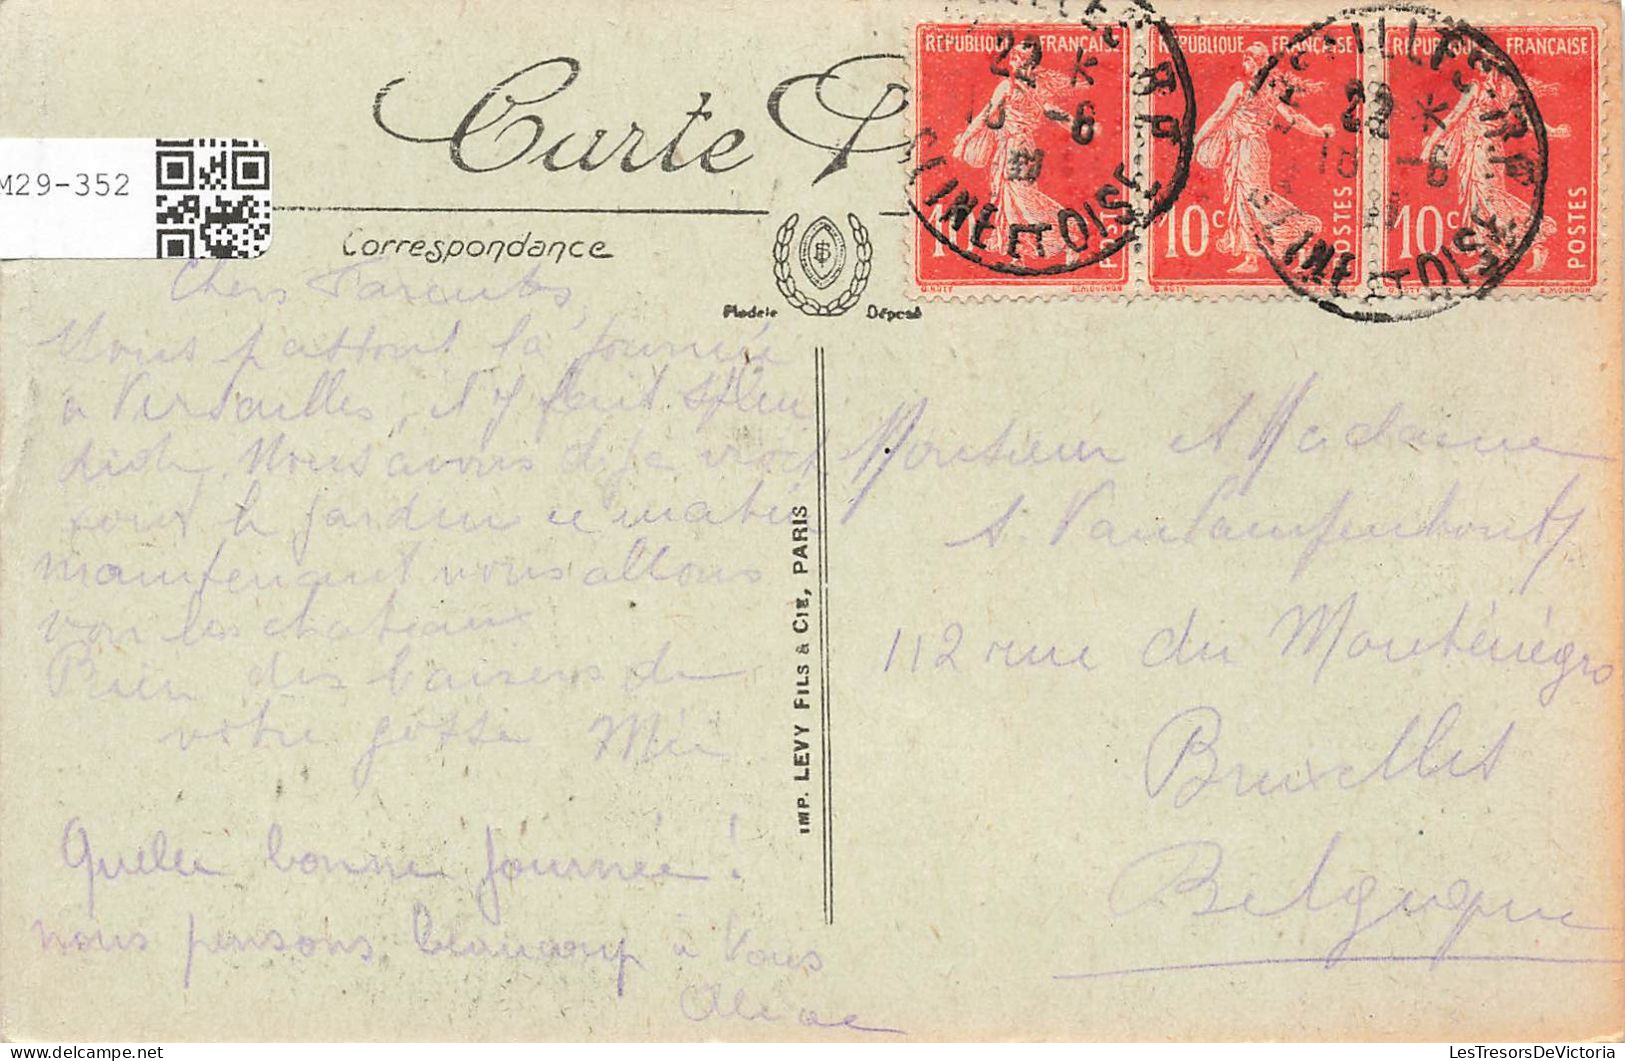 M29-352
Carte P
Correspondance
Modèle Déposé
RÉPUBLIQUE FRANÇAISE
RÉPUBLIQUE FRANÇAISE
RÉPUBLIQUE FRANÇAISE
22 *
-6
SEINE ET OISE
10c POSTES
10c POSTES
10c POSTES
O. ROTY
E. MOUCHON
Chers Parents
Nous passons la journée
a Versailles, il y fait splen
dide. Nous avons déja
le jardin ce matin
maintenant nous allons
voir les chateaux
Bien des baisers de
votre gosse Mie
Quelle bonne journée!
nous pensons beaucoup à vous
IMP. LEVY FILS & CIE, PARIS
Monsieur et Madame
112 rue du Monténégro
Bruxelles
Belgique
LesTresorsDeVictoria